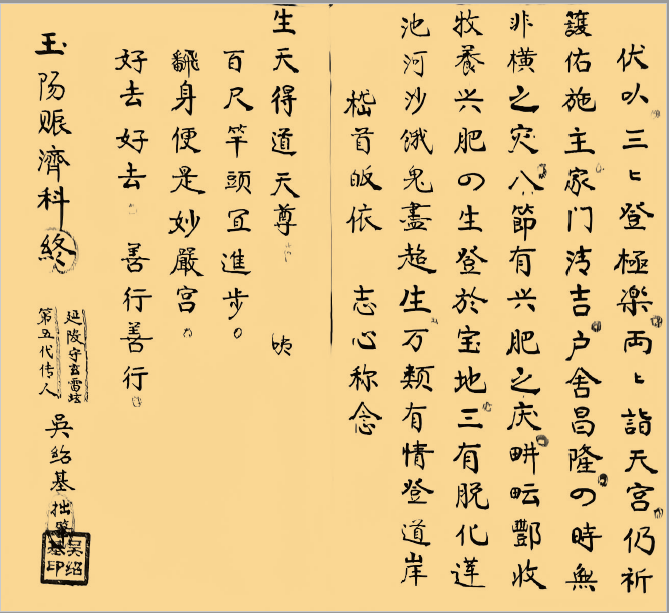 伏以三匕登極楽両匕詣天宮仍祈
護佑施主家门清吉户舍昌隆の時無
非横之灾八節有兴肥之庆畊酆收
牧養兴肥の生登於宝地三有脱化莲
池河沙饿鬼盡超生万類有情登道岸
嵇首皈依 志心称念
生天得道天尊。 咦
百尺竿頭宜進步。
翻身便是妙嚴宮。
好去好去。 善行善行。
玉陽赈濟科終
延陵守玄雷坛
第五代传人
吳绍基拙筆
吴绍基印